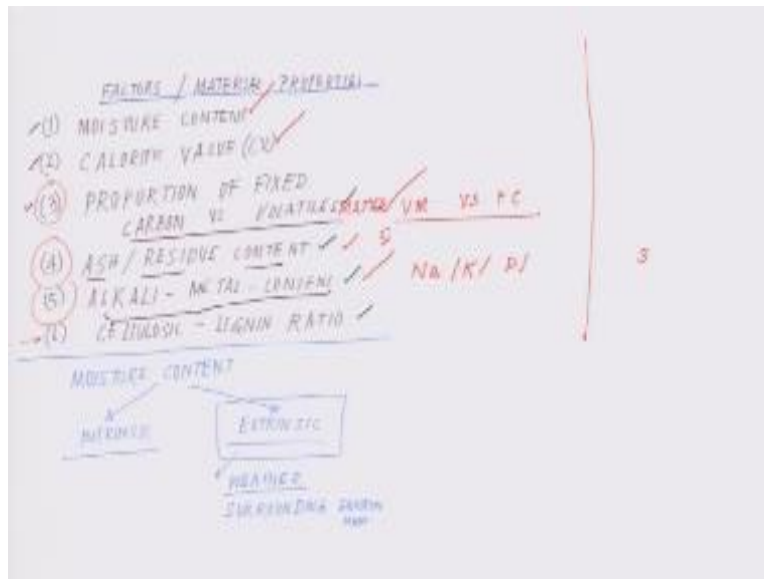 FACTORS / MATERIAL PROPERTIES
(1) MOISTURE CONTENT
(2) CALORIFIC VALUE (CV)
(3) PROPORTION OF FIXED
CARBON VS VOLATILES MATTER VM VS FC
(4) ASH / RESIDUE CONTENT
(5) ALKALI - METAL - CONTENT Na /K/ P/
(6) CELLULOSIC - LIGNIN RATIO
MOISTURE CONTENT
INTRINSIC EXTRINSIC
WEATHER
SURROUNDING